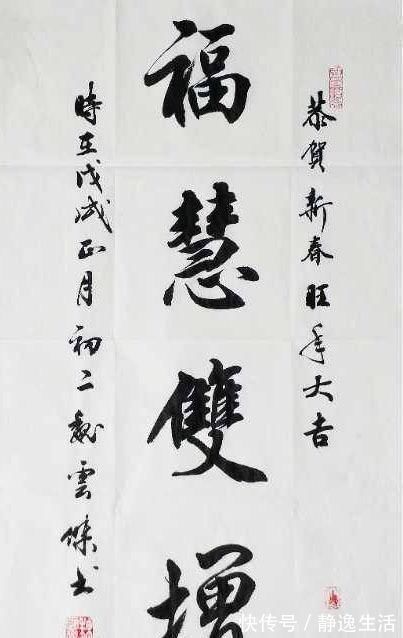 恭賀新春旺年大吉
福慧雙增
時在戊戌正月初二魏雲傑书
快传号/静逸生活